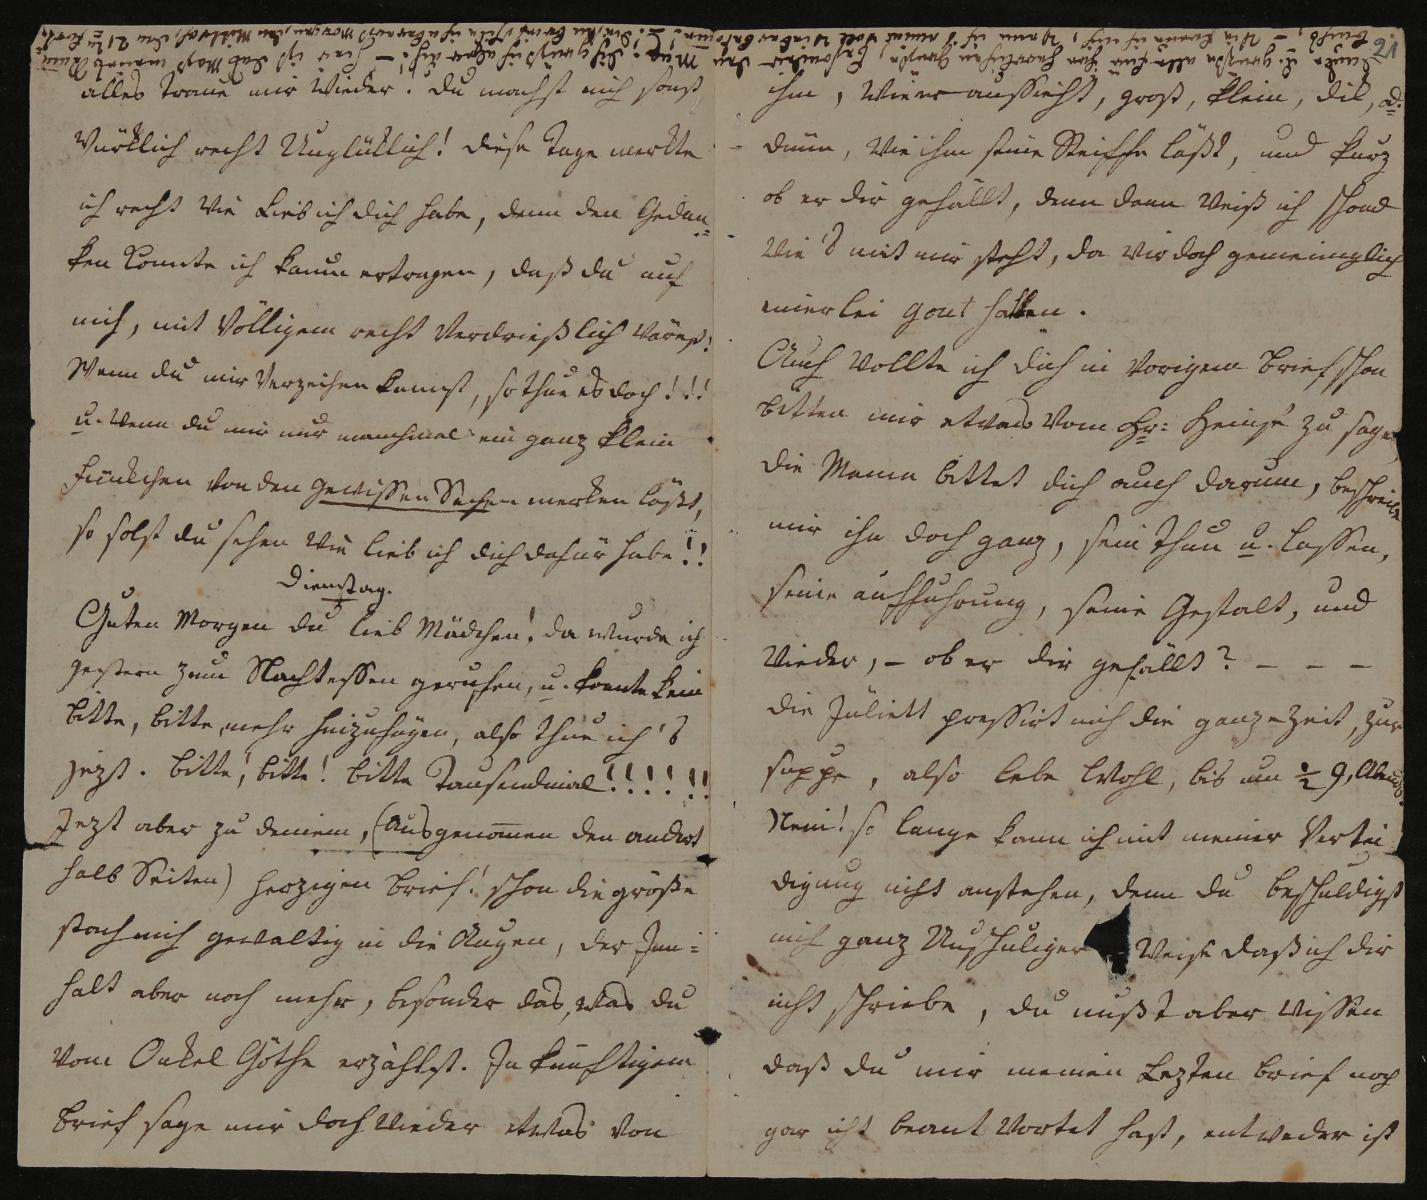 alles traue mir wieder. du machst mich sonst
würklich recht Unglüklich! diese Tage merkte
ich recht wie Lieb ich dich habe, denn den Gedan=
ken konnte ich kaum ertragen, daß du auf
mich, mit völligem recht verdrießlich wärest!
Wenn du mir verzeihen kannst, so thue es doch!!!
u. wenn du mir nur manchmal ein ganz klein
fünkchen von den gewissen Sachen merken läßt,
so solst du sehen wie lieb ich dich dafür habe!!
Dienstag.
Guten Morgen du lieb Mädchen! da wurde ich
gestern zum Nachtessen gerufen, u. konte kein
bitte, bitte, mehr hinzufügen, also thue ich's
jezt. bitte! bitte! bitte Tausendmal!!!!!!
Jezt aber zu deinem, (ausgenommen den andert
halb Seiten) herzigen brief! schon die größe
stach mich gewaltig in die Augen, der Inn=
halt aber noch mehr, besonder das, was du
vom Onkel Göthe erzählst. In künftigem
brief sage mir doch wieder etwas von
21
ihm, wie er aussieht, groß, klein, dik, od:
dünn, wie ihm seine Steiffe läßt, und kurz
ob er dir gefällt, denn dann weiß ich schond
wie's mit mir steht, da wir doch gemeiniglich
einerlei gout hatten.
Auch wollte ich dich in vorigem brief schon
bitten mir etwas vom Hr: Heinse zu sagen,
die Mama bittet dich auch darum, beschreibe
mir ihn doch ganz, sein thun u. lassen,
seine aufführung, seine Gestalt, und
wieder, – ob er dir gefällt? – – –
die Jüliett pressirt mich die ganze Zeit, zur
suppe, also lebe wohl, bis um ½ 9, Abends.
Nein! so lange kann ich mit meiner Vertei
digung nicht anstehen, denn du beschuldigst
mich ganz Unschuliger Weise daß ich dir
nicht schriebe, du mußt aber wissen
daß du mir meinen Lezten brief noch
gar icht beant wortet hast, entweder ist